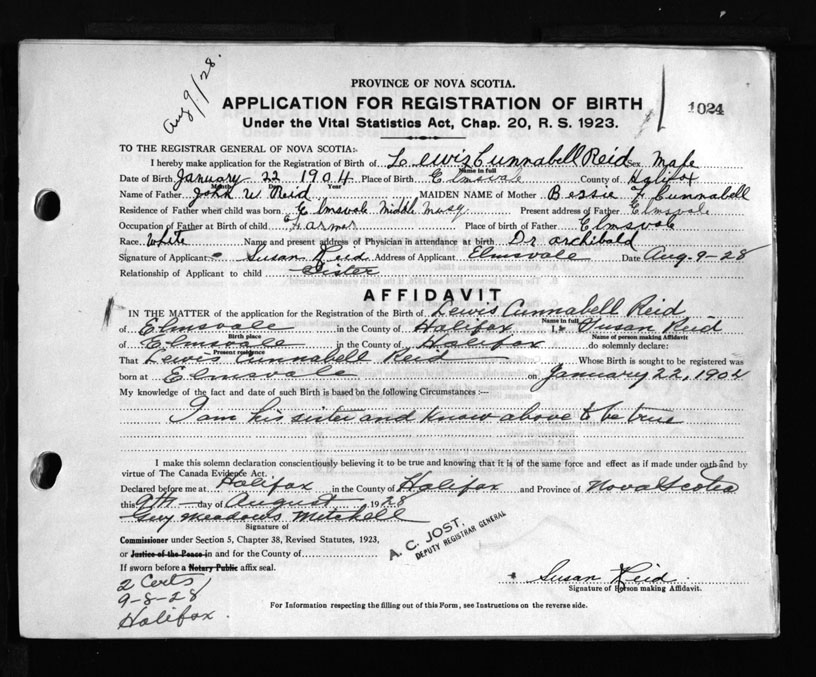 Aug 9/28.
PROVINCE OF NOVA SCOTIA.
APPLICATION FOR REGISTRATION OF BIRTH
1024
Under the Vital Statistics Act, Chap. 20, R. S. 1923.
TO THE REGISTRAR GENERAL OF NOVA SCOTIA:-
I hereby make application for the Registration of Birth of Lewis Cunnabell Reid Sex Male
Name in full
Date of Birth January 22 1904 Place of Birth Elmsvale County of Halifax
Month Day Year
Name of Father John W. Reid MAIDEN NAME of Mother Bessie F Cunnabell
Residence of Father when child was born Elmsvale Middle Musq. Present address of Father Elmsvale
Occupation of Father at Birth of child Farmer Place of birth of Father Elmsvale
Race White Name and present address of Physician in attendance at birth Dr Archibald
Signature of Applicant Susan Reid Address of Applicant Elmsvale Date Aug-9-28
Relationship of Applicant to child Sister
AFFIDAVIT
IN THE MATTER of the application for the Registration of the Birth of Lewis Cunnabell Reid
Name in full
of Elmsvale in the County of Halifax I, Susan Reid
Birth place Name of person making Affidavit
of Elmsvale in the County of Halifax do solemnly declare:
Present residence
That Lewis Cunnabell Reid Whose Birth is sought to be registered was
born at Elmsvale on January 22, 1904
My knowledge of the fact and date of such Birth is based on the following Circumstances :—
I am his sister and know above to be true
I make this solemn declaration conscientiously believing it to be true and knowing that it is of the same force and effect as if made under oath and by
virtue of The Canada Evidence Act.
Declared before me at Halifax in the County of Halifax and Province of Nova Scotia
this 9th day of August 1928
Guy Meadows Mitchell
Signature of
Commissioner under Section 5, Chapter 38, Revised Statutes, 1923,
or Justice of the Peace in and for the County of
If sworn before a Notary Public affix seal.
A. C. JOST,
DEPUTY REGISTRAR GENERAL
2 Certs
9-8-28
Halifax.
Susan Reid
Signature of Person making Affidavit.
For Information respecting the filling out of this Form, see Instructions on the reverse side.